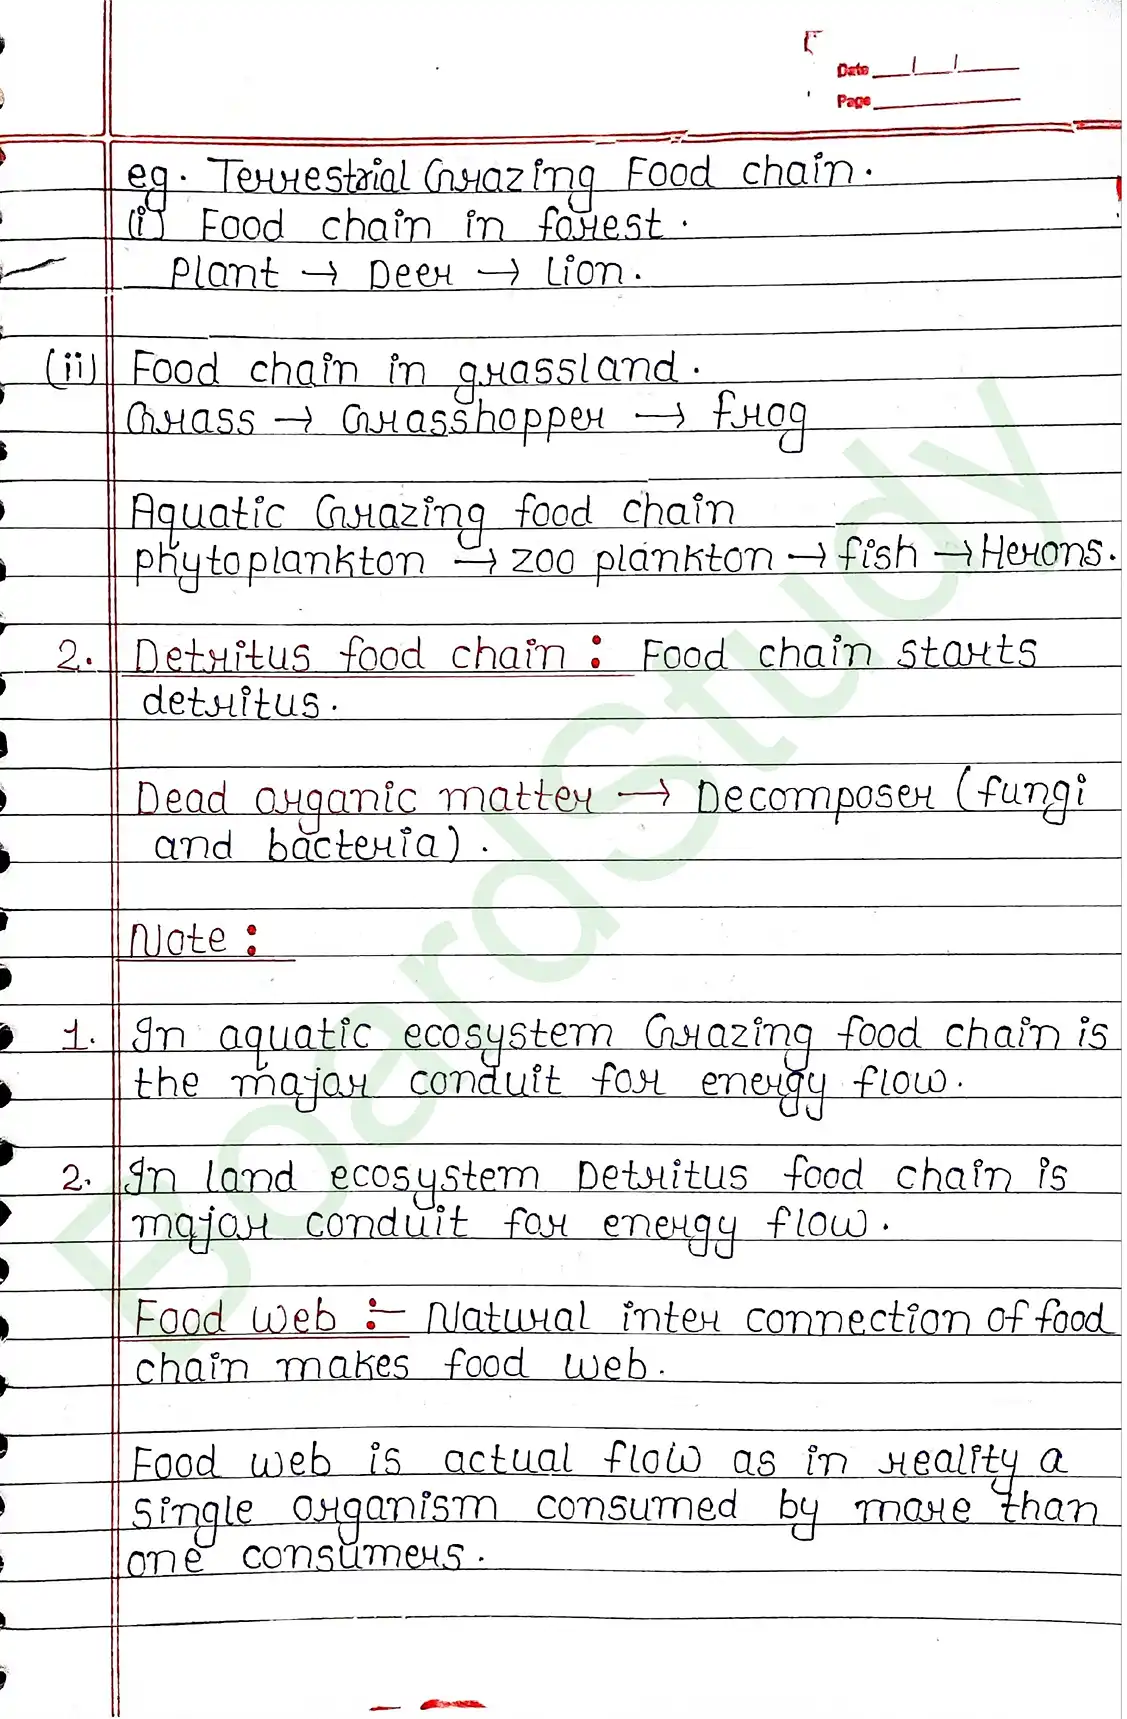 Date
Page
eg. Terrestrial Grazing Food chain.
(i) Food chain in forest.
Plant → Deer → Lion.
(ii) Food chain in grassland.
Grass → Grasshopper → frog
Aquatic Grazing food chain
phytoplankton → zoo plankton → fish → Herons.
2. Detritus food chain : Food chain starts
detritus.
Dead organic matter → Decomposer (fungi
and bacteria).
Note :
1. In aquatic ecosystem Grazing food chain is
the major conduit for energy flow.
2. In land ecosystem Detritus food chain is
major conduit for energy flow.
Food web :- Natural inter connection of food
chain makes food web.
Food web is actual flow as in reality a
single organism consumed by more than
one consumers.
BoardStudy